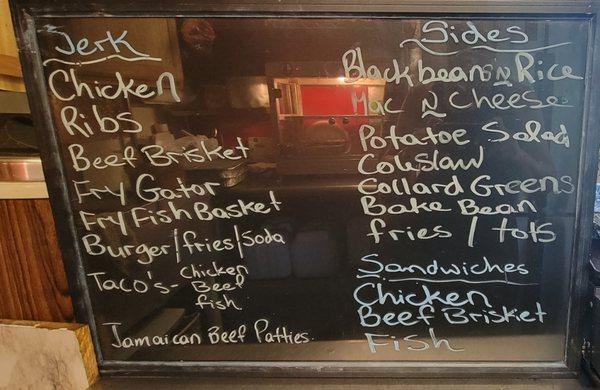 Jerk
Chicken
Ribs
Beef Brisket
Fry Gator
Fry Fish Basket
Burger/fries/Soda
Taco's - Chicken
Beef
fish
Jamaican Beef Patties.
Sides
Black beans N Rice
Mac N Cheese
Potatoe Salad
Coleslaw
Collard Greens
Bake Bean
fries / tots
Sandwiches
Chicken
Beef Brisket
Fish